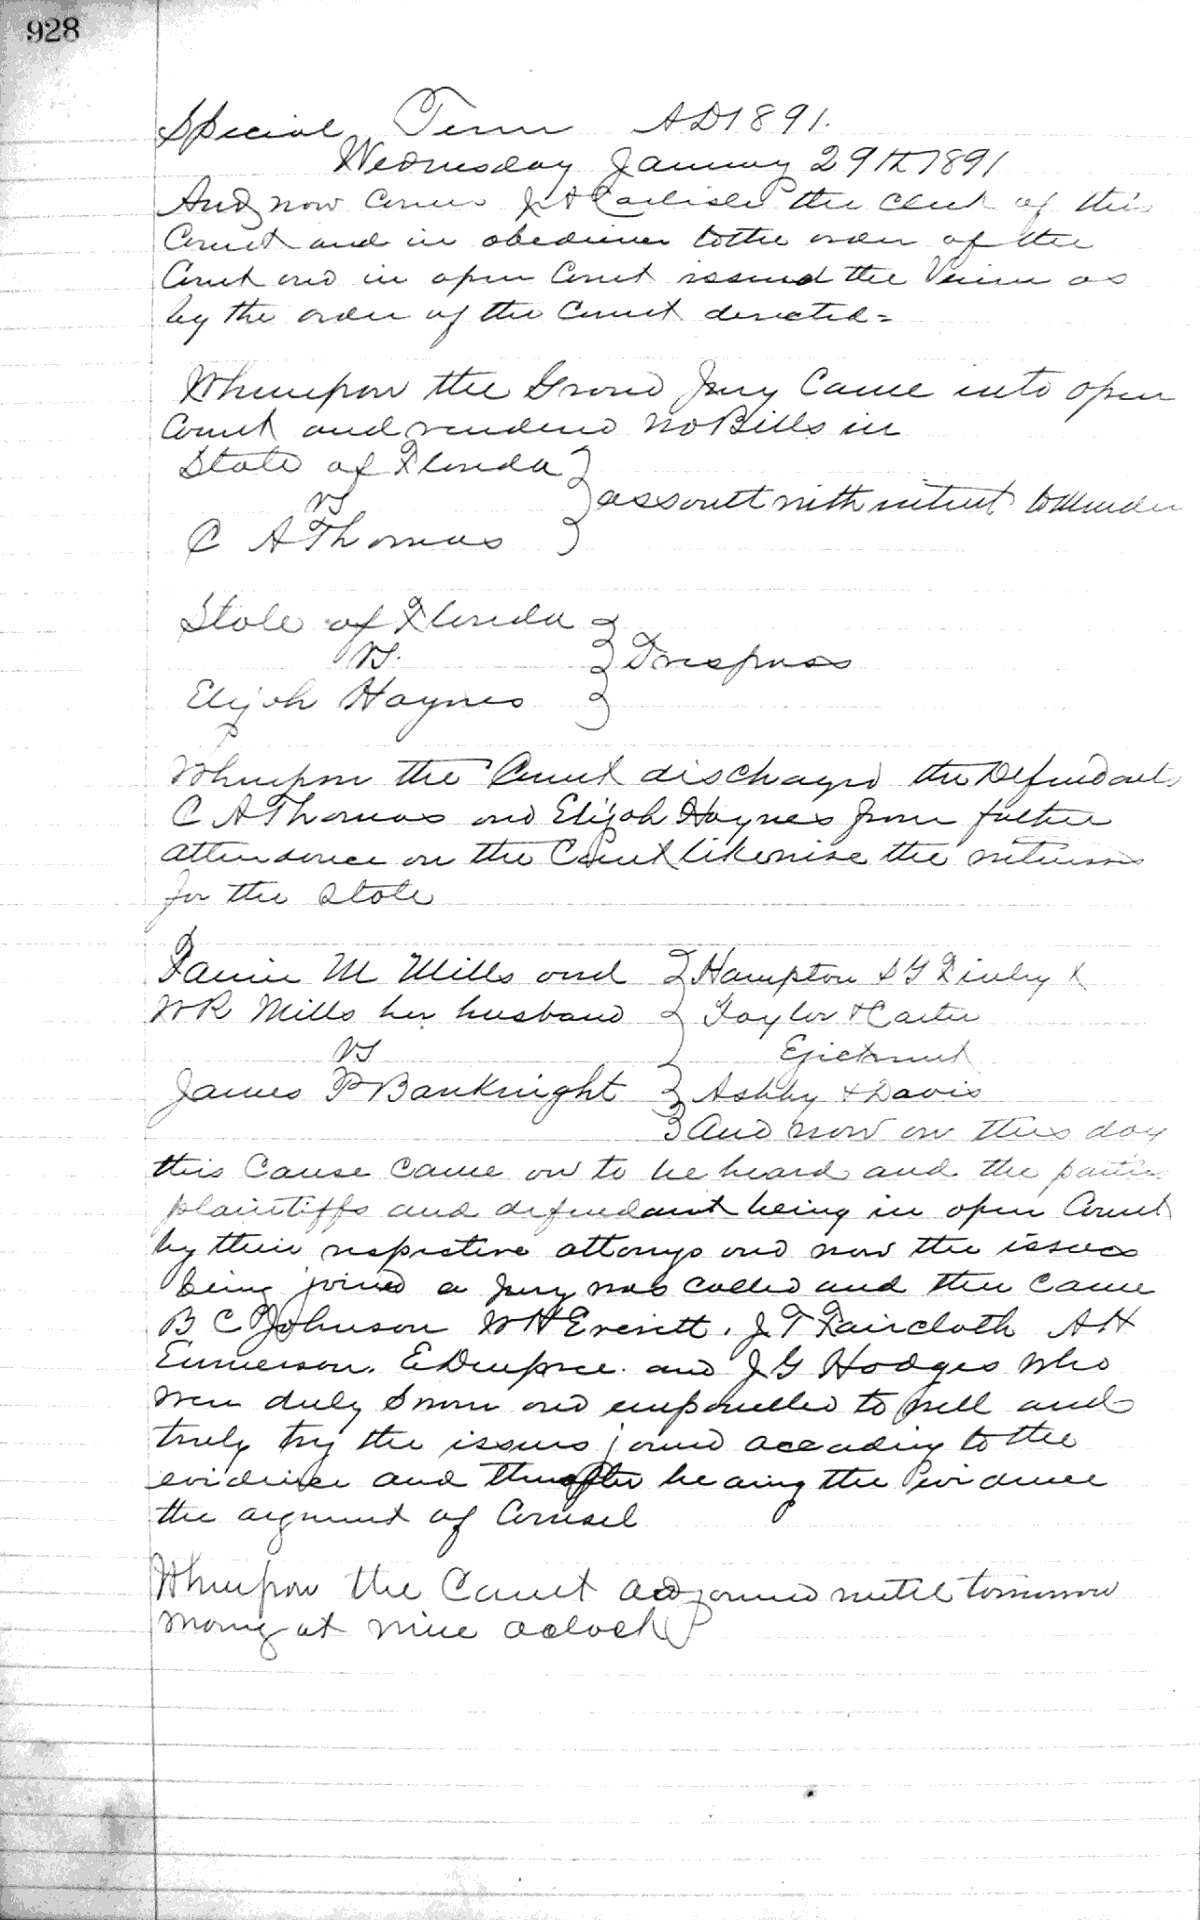 928
Special Term AD 1891.
Wednesday January 29th 1891
And now comes J A Carlisle the clerk of this
Court and in obedience to the order of the
Court and in open Court issued the Venire as
by the order of the Court directed=
Whereupon the Grand Jury Came into open
Court and rendered No Bills in
State of Florida
vs
assault with intent to Murder
C A Thomas
State of Florida
vs.
Trespass
Elijah Haynes
Whereupon the Court discharged the Defendants
C A Thomas and Elijah Haynes from further
attendance on the Court likewise the witnesses
for the State
Fannie M Mills and Hampton S Y Finley &
W R Mills her husband Taylor & Carter
vs Ejectment
James P Bauknight Ashby & Davis
And now on this day
this Cause came on to be heard and the parties
plaintiffs and defendant being in open Court
by their respective attorneys and now the issues
being joined a jury was called and then came
B C Johnson W H Everett. J T Faircloth A H
Emmerson. E Dupree. and J G Hodges who
were duly Sworn and empanelled to well and
truly try the issues joined according to the
evidence and thereafter hearing the evidence
the argument of Counsel
Whereupon the Court adjourned until tomorrow
morning at nine oclock